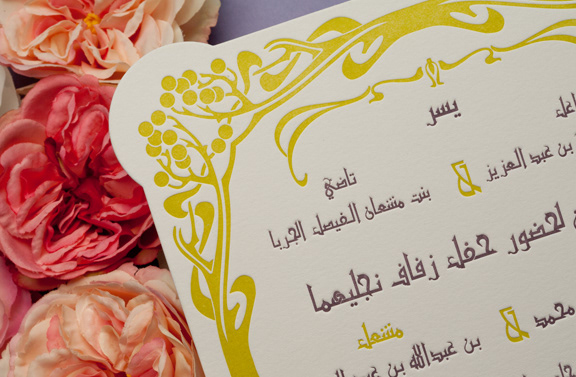 يسر
بن عبد العزيز & تاضي
بنت مشعان الفيصل الجربا
لحضور حفل زفاف نجليهما
محمد & مشعل
بن عبدالله بن عبد